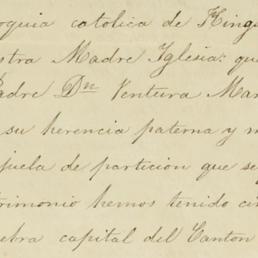 oquia catolica de King
stra Madre Iglesia: que
Padre Dn Ventura Mar
su herencia paterna y m
juela de particion que se
trimonio hemos tenido cin
capital del Canton